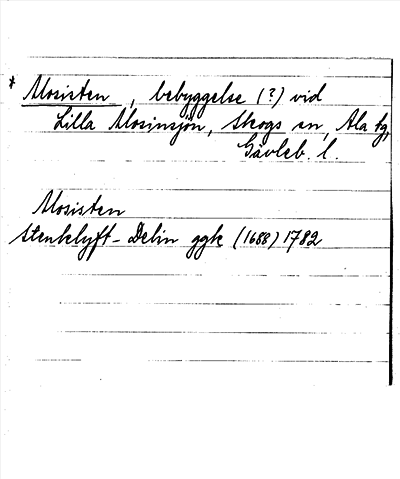 * Mosisten, bebyggelse (?) vid
Lilla Mosinsjön, Skogs sn, Ala tg,
Gävleb. l.
Mosisten
Stenklyft-Delin ggk (1688) 1782